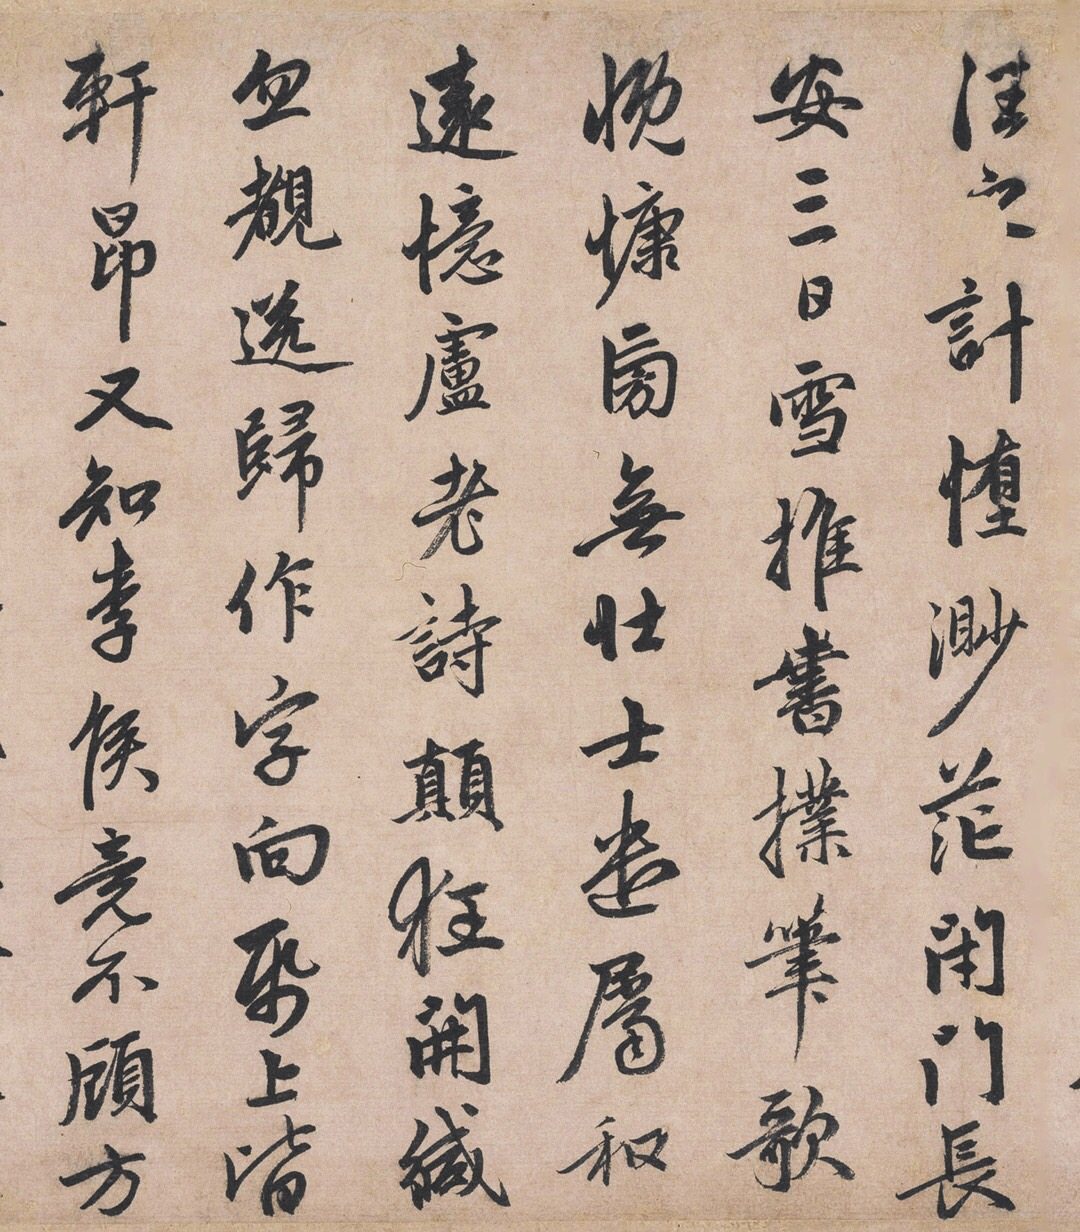 往之計墮渺茫閉門長
安三日雪推書撲筆歌
慨慷旁無壯士遣屬和
遠憶盧老詩顛狂開緘
忽覩送歸作字向紙上皆
軒昂又知李侯竟不顧方